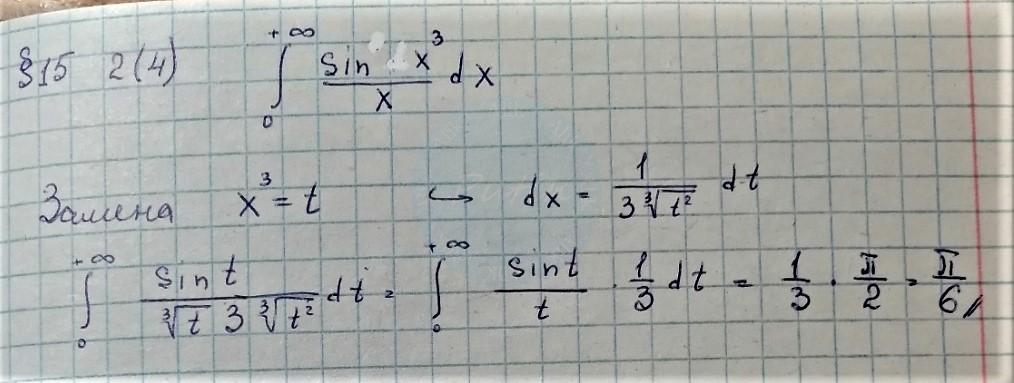 §15 2(4) ∫₀^{+∞} \frac{sin x³}{x} dx
Замена x³ = t ↪ dx = \frac{1}{3∛t²} dt
∫₀^{+∞} \frac{sin t}{∛t 3 ∛t²} dt = ∫₀^{+∞} \frac{sin t}{t} · \frac{1}{3} dt = \frac{1}{3} · \frac{π}{2} = \frac{π}{6}